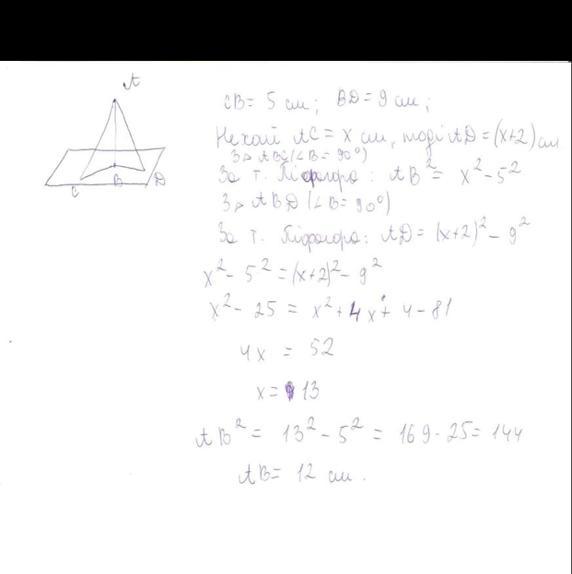 A
C B D
CB = 5 см; BD = 9 см;
Нехай AC = x см, тоді AD = (x+2) см
З ▵ ABC (∠B = 90°)
За т. Піфагора: AB² = x² - 5²
З ▵ ABD (∠B = 90°)
За т. Піфагора: AD = (x+2)² - 9²
x² - 5² = (x+2)² - 9²
x² - 25 = x² + 4x + 4 - 81
4x = 52
x = 13
AB² = 13² - 5² = 169 - 25 = 144
AB = 12 см.